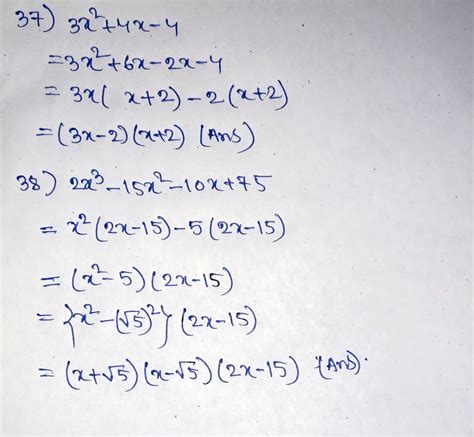 37) 3x²+4x-4
=3x²+6x-2x-4
= 3x( x+2)-2(x+2)
=(3x-2)(x+2) (Ans)
38) 2x³-15x²-10x+75
= x²(2x-15)-5(2x-15)
= (x²-5)(2x-15)
= {x²-(√5)²}(2x-15)
= (x+√5)(x-√5)(2x-15) (Ans).